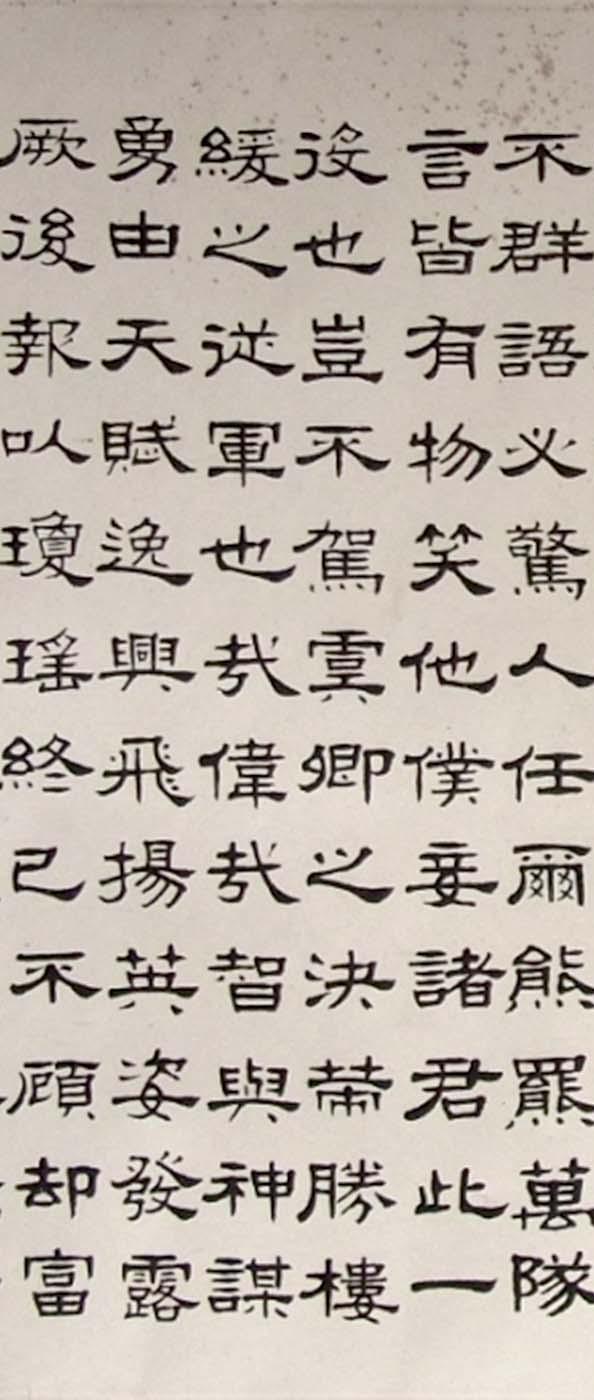 不群語必驚人任爾熊羆萬隊
言皆有物笑他僕妾諸君此一
役也豈不駕虞卿之決策勝樓
緩之從軍也哉偉哉智與神謀
勇由天賦逸興飛揚英姿發露
厥後報以瓊瑤終已不顧却富